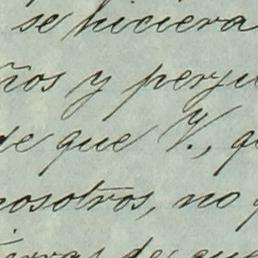 se hiciera
ños y perju
de que V., q
nosotros, no